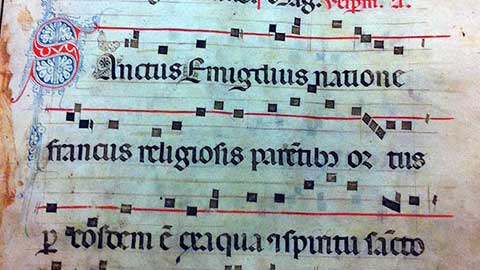 Sanctus Emigdius natione
francus religiosis parētibꝫ or tus
ꝑ eosdem ē ex aqua ⁊ spiritu sācto